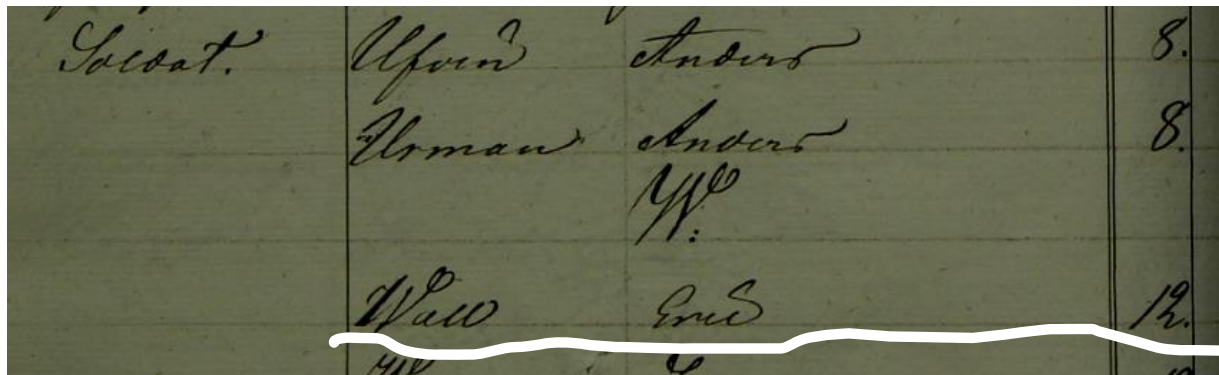 Soldat. Ufven Anders 8.
Urman Anders 8.
W.
Wall Eric 12.